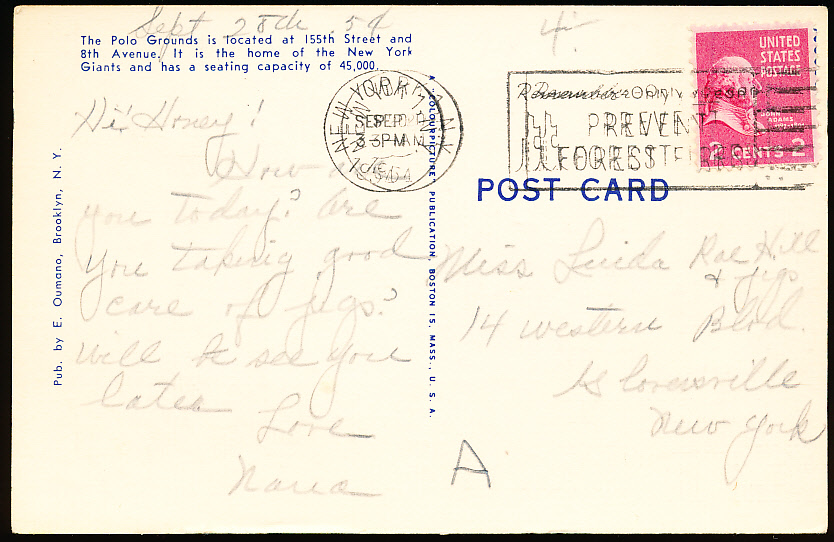 Sept 28th 54
4
The Polo Grounds is located at 155th Street and
8th Avenue. It is the home of the New York
Giants and has a seating capacity of 45,000.
Hi! Honey!
How are
you today? Are
you taking good
care of Jigs?
Will be see you
later
Love
Nana
Pub. by E. Oumano, Brooklyn, N. Y.
A COLOURPICTURE PUBLICATION, BOSTON 15, MASS., U. S. A.
NEW YORK, N.Y.
SEP
3 PM
1954
PREVENT
FOREST
UNITED
STATES
POSTAGE
JOHN
ADAMS
2 CENTS 2
POST CARD
Miss Linda Rae Hill
& Jigs
14 western Blvd.
Gloversville
New York
A